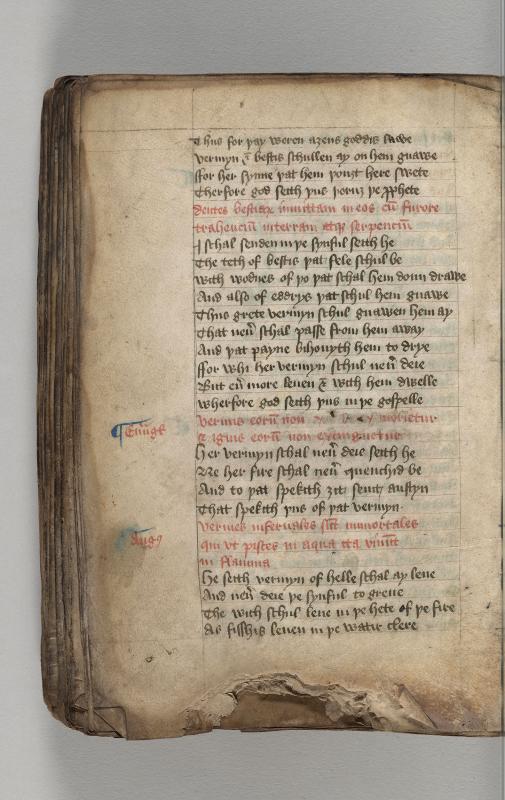 Thus for þay weren aȝens goddis lawe
vermyn & bestis schullen ay on hem gnawe
ffor her synne þat hem þouȝt here swete
Therfore god seith þus þoruȝ þe ꝓphete
dentes bestiarꝫ inmittam in eos cū furore
trahenciū in terram atqꝫ serpenciū
I schal senden in þe synful seith he
The teth of bestis þat fele schul be
with wodnes of þo þat schal hem doun drawe
And also of eddrys þat schul hem gnawe
Thus grete vermyn schul gnawen hem ay
That neū schal passe from hem away
And þat payne bihouyth hem to drye
ffor whi her vermyn schul neū deie
But eū more leuen & with hem dwelle
wherfore god seith þus in þe gospelle
vermis eorū non morietur
& ignis eorū non extinguetur
Euūgᵉ
Her vermyn schal neū deie seith he
Ne her fire schal neū quenchid be
And to þat spekith ȝit seint austyn
That spekith þus of þat vermyn
vermes infernales sūt inmortales
Augꝰ
qui vt pisces in aqua ita viuūt
in flamma
He seith vermyn of helle schal ay leue
And neū deie þe synful to greue
The wich schul leue in þe hete of þe fire
As fisshis leuen in þe watir clere